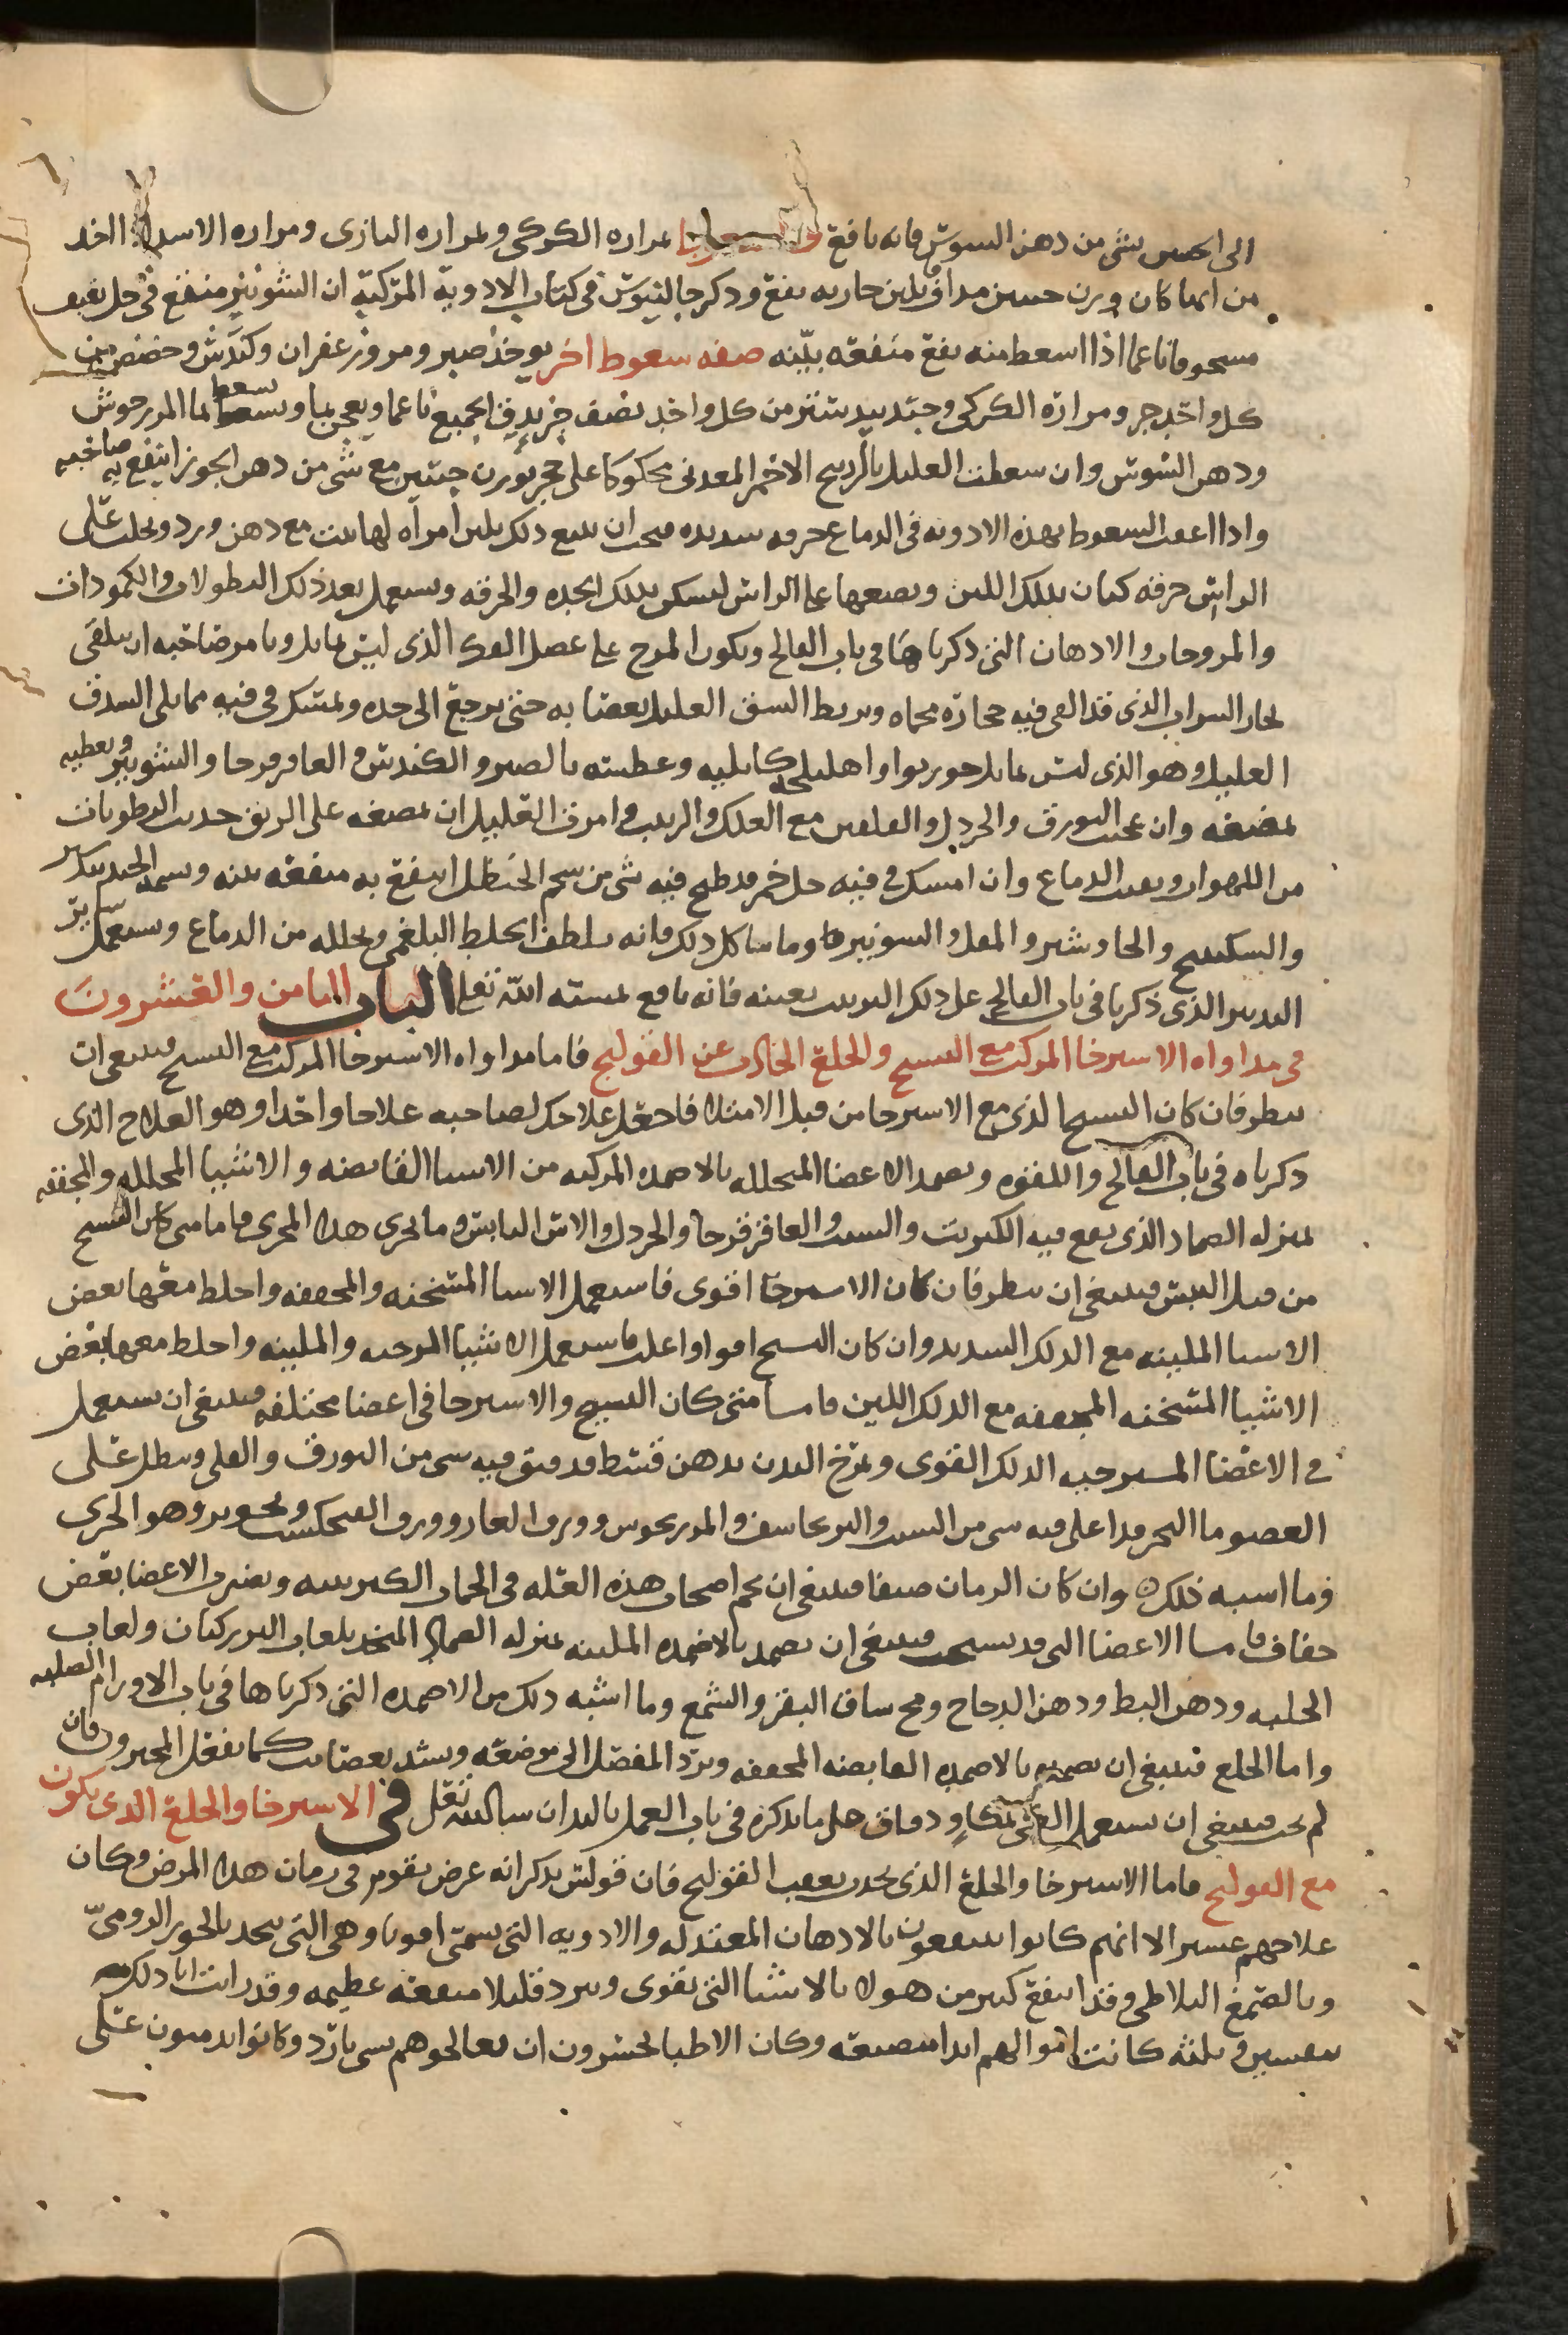 الى احمر شى من دهن السوسن فانه نافع بمراره الكركى ومراره البازى ومراره الاسد اخذ
من ايها كان وزن حبتين مداف بلبن جاريه نفع وذكر جالينوس فى كتاب الادوية المركبة ان الشونيز منفع فى خل ثقيف
مسحوقا ناعما اذا اسعط منه نفع منفعه بيّنه صفه سعوط اخر يوخذ صبر ومر وزعفران وكندش وحضض من
كل واحد جزو ومرارة الكركى وجندبيدستر من كل واحد نصف جز يدق الجميع ناعما ويعجن بما ويسعط بما المرزجوش
ودهن السوسن وان سعطت العليل بالزرنيخ الاحمر المعدنى محكوكا على حجر بوزن حبتين مع شى من دهن الجوز انتفع به صاحبه
واذا اعقب السعوط بهذه الادويه فى الدماغ حرقه شديده فيجب ان يتبع ذلك بلبن امراه لها بنت مع دهن ورد ويحلب على
الراس خرقه كتان بذلك اللبن ويضعها على الراس ليسكن بذلك الحده والحرقه ويستعمل بعد ذلك النطولات والكمودات
والمروخات والادهان التى ذكرناها فى باب الفالج ويكون المرخ على عضل الفك الذى ليس بمايل ويامر صاحبه ان يتلقى
بخار الشراب الذى قد القى فيه حجارة محماه ويربط الشق العليل بعصابه حتى يرجع الى حده ويمسك فى فيه مما يلى الشدق
العليل وهو الذى ليس بمايل جوزبوا او اهليلجه كابليه وعطسه بالصبر والكندس والعاقرقرحا والشونيز ويعطيه
بمضغه وان عجنت البورق والخردل والفلفل مع العلك والزبيب وامرت العليل ان يمضغه على الريق جذب الرطوبات
من اللهوات ونقى الدماغ وان امسك فى فيه خل خمر قد طبخ فيه شى من شحم الحنظل انتفع به منفعه بينه
والسكبينج والجاوشير والمقل والشونيز وما شاكل ذلك فانه يلطف الخلط البلغمى ويحلله من الدماغ ويستعمل ساير
التدبير الذى ذكرنا فى باب الفالج على ذلك الترتيب بعينه فانه نافع بمشيه الله تعلى الباب الثامن والعشرون
فى مداواه الاسترخا المركب مع التشنج والخلع الحادث عن القولنج فاما مداواه الاسترخا المركب مع التشنج فينبغى ان
تنظر فان كان التشنج الذى مع الاسترخا من قبل الامتلا فاجعل علاجك لصاحبه علاجا واحدا وهو العلاج الذى
ذكرناه فى باب الفالج واللقوه وتضمد الاعضا المتحلله بالاضمده المركبه من الاشيا القابضه والاشيا المحلله والمجففه
بمنزله الضماد الذى يقع فيه الكبريت والعاقرقرحا والخردل والاس اليابس وما يجرى هذا المجرى فاما متى كان التشنج
من قبل اليبس فينبغى ان تنظر فان كان الاسترخا اقوى فاستعمل الاشيا المسخنه والمجففه واخلط معها بعض
الاشيا الملينه مع الدلك الشديد وان كان التشنج اقوا واغلب فاستعمل الاشيا المرخيه والملينه واخلط معها بعض
الاشيا المسخنه المجففه مع الدلك اللين فاما متى كان التشنج والاسترخا فى اعضا مختلفه فينبغى ان تستعمل
فى الاعضا المسترخيه الدلك القوى وتمرخ البدن بدهن قسط قد فتق فيه شى من البورق والقلى وتنطل على
العضو ما البحر قد اغلى فيه شى من الشبت والبرنجاسف والمرزنجوش وورق الغار وورق الفنجنكشت
وما اشبه ذلك وان كان الزمان صيفا فينبغى ان يحم اصحاب هذه العله فى الحمات الكبريتيه الاعضا بعض
جفاف فاما الاعضا التى قد تشنجت فينبغى ان تضمد بالاضمده الملينه بمنزله الضماد المتخذ بلعاب البزركتان ولعاب
الحلبه ودهن البط ودهن الدجاج ومخ ساق البقر والشمع وما اشبه ذلك من الاضمده التى ذكرناها فى باب الاورام الصلبه
واما الخلع فينبغى ان تضمده بالاضمده القابضه المجففه وترد المفصل الى موضعه وتشد بعصايب كما يفعل المجبرون فان
لم يجب فينبغى ان تستعمل الكى على ما نذكره فى باب العمل باليد ان شا الله تعلى فى الاسترخا والخلع الذى يكون
مع القولنج فاما الاسترخا والخلع الذى يحدث بعقب القولنج فان فولس يذكر انه عرض لقوم فى زمان هذا المرض وكان
علاجهم عسير الا انهم كانوا ينتفعون بالادهان المعتدله والادويه التى تسمى وهى التى تتخذ بالجوز الرومىّ
وبالصمغ البلاطى وقد انتفع كثير من هولا بالاشيا التى تقوى وتبرد قليلا منفعه عظيمه وقد رايت
كانت احوالهم ابدا وكان الاطبا يحسرون ان يعالجوهم بشى بارد وكانوا يدمنون على